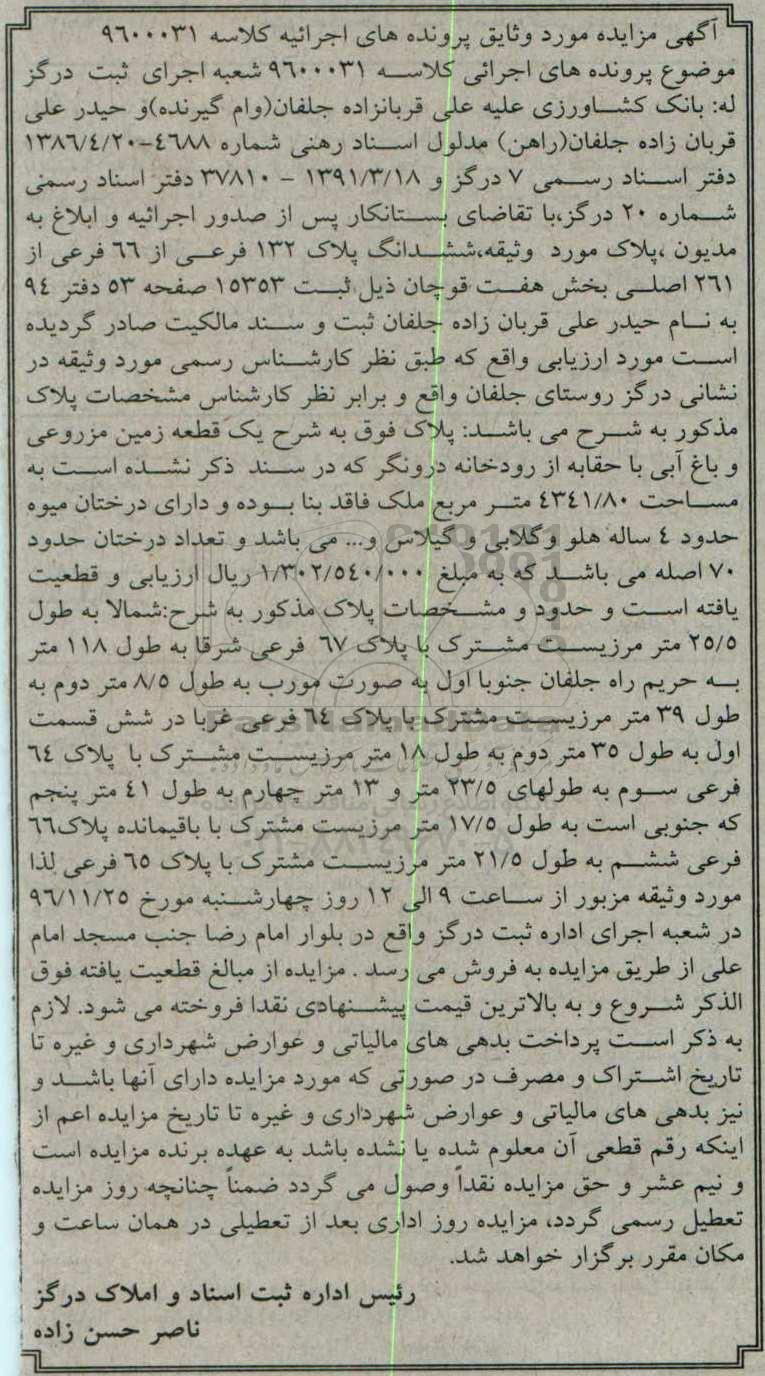 آگهی مزایده مورد وثایق پرونده های اجرائیه کلاسه ۹۶۰۰۰۳۱
موضوع پرونده های اجرائی کلاسه ۹۶۰۰۰۳۱ شعبه اجرای ثبت درگز
له: بانک کشاورزی علیه علی قربانزاده جلفان(وام گیرنده)و حیدر علی
قربان زاده جلفان(راهن) مدلول اسناد رهنی شماره ۴۶۸۸-۱۳۸۶/۴/۲۰
دفتر اسناد رسمی ۷ درگز و ۱۳۹۱/۳/۱۸ - ۳۷۸۱۰ دفتر اسناد رسمی
شماره ۲۰ درگز،با تقاضای بستانکار پس از صدور اجرائیه و ابلاغ به
مدیون ،پلاک مورد وثیقه،ششدانگ پلاک ۱۳۲ فرعی از ۶۶ فرعی از
۲۶۱ اصلی بخش هفت قوچان ذیل ثبت ۱۵۳۵۳ صفحه ۵۳ دفتر ۹۴
به نام حیدر علی قربان زاده جلفان ثبت و سند مالکیت صادر گردیده
است مورد ارزیابی واقع که طبق نظر کارشناس رسمی مورد وثیقه در
نشانی درگز روستای جلفان واقع و برابر نظر کارشناس مشخصات پلاک
مذکور به شرح می باشد: پلاک فوق به شرح یک قطعه زمین مزروعی
و باغ آبی با حقابه از رودخانه درونگر که در سند ذکر نشده است به
مساحت ۴۳۴۱/۸۰ متر مربع ملک فاقد بنا بوده و دارای درختان میوه
حدود ۴ ساله هلو وگلابی و گیلاس و... می باشد و تعداد درختان حدود
۷۰ اصله می باشد که به مبلغ ۱/۳۰۲/۵۴۰/۰۰۰ ریال ارزیابی و قطعیت
یافته است و حدود و مشخصات پلاک مذکور به شرح:شمالا به طول
۲۵/۵ متر مرزیست مشترک با پلاک ۶۷ فرعی شرقا به طول ۱۱۸ متر
به حریم راه جلفان جنوبا اول به صورت مورب به طول ۸/۵ متر دوم به
طول ۳۹ متر مرزیست مشترک با پلاک ۶۴ فرعی غربا در شش قسمت
اول به طول ۳۵ متر دوم به طول ۱۸ متر مرزیست مشترک با پلاک ۶۴
فرعی سوم به طولهای ۲۳/۵ متر و ۱۳ متر چهارم به طول ۴۱ متر پنجم
که جنوبی است به طول ۱۷/۵ متر مرزیست مشترک با باقیمانده پلاک۶۶
فرعی ششم به طول ۲۱/۵ متر مرزیست مشترک با پلاک ۶۵ فرعی لذا
مورد وثیقه مزبور از ساعت ۹ الی ۱۲ روز چهارشنبه مورخ ۹۶/۱۱/۲۵
در شعبه اجرای اداره ثبت درگز واقع در بلوار امام رضا جنب مسجد امام
علی از طریق مزایده به فروش می رسد . مزایده از مبالغ قطعیت یافته فوق
الذکر شروع و به بالاترین قیمت پیشنهادی نقدا فروخته می شود. لازم
به ذکر است پرداخت بدهی های مالیاتی و عوارض شهرداری و غیره تا
تاریخ اشتراک و مصرف در صورتی که مورد مزایده دارای آنها باشد و
نیز بدهی های مالیاتی و عوارض شهرداری و غیره تا تاریخ مزایده اعم از
اینکه رقم قطعی آن معلوم شده یا نشده باشد به عهده برنده مزایده است
و نیم عشر و حق مزایده نقداً وصول می گردد ضمناً چنانچه روز مزایده
تعطیل رسمی گردد، مزایده روز اداری بعد از تعطیلی در همان ساعت و
مکان مقرر برگزار خواهد شد.
رئیس اداره ثبت اسناد و املاک درگز
ناصر حسن زاده